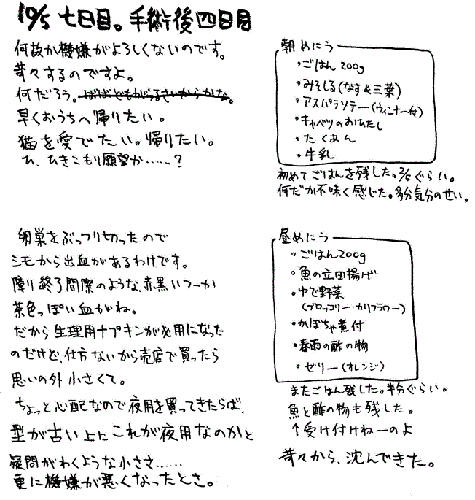 10/5 七日目。手術後四日目
何故か機嫌がよろしくないのです。
苛々するのですよ。
何だろう。
早くおうちへ帰りたい。
猫を愛でたい。帰りたい。
あ、ひきこもり願望か……?
朝めにう
・ごはん200g
・みそしる(なす&三菜)
・アスパラソテー(ウィンナー有)
・キャベツのおひたし
・たくあん
・牛乳
初めてごはんを残した。ぐらい。
何だか不味く感じた。多分気分のせい。
卵巣をぶっつり切ったので
シモから出血があるわけです。
障り終了間際のような、赤黒いつーか
茶色っぽい血がね。
だから生理用ナプキンが必用になった
のだけど、仕方ないから売店で買ったら
思いの外小さくて。
ちょっと心配なので夜用を買ってきたらば、
型が古い上にこれが夜用なのかと
疑問がわくような小ささ……
更に機嫌が悪くなったとさ。
昼めにう
・ごはん200g
・魚の立田揚げ
・ゆで野菜
(ブロッコリー・カリフラワー)
・かぼちゃ煮付
・春雨の酢の物
・ゼリー(オレンジ)
またごはん残した。半分ぐらい。
魚と酢の物も残した。
↑受け付けねーのよ
苛々から、沈んできた。